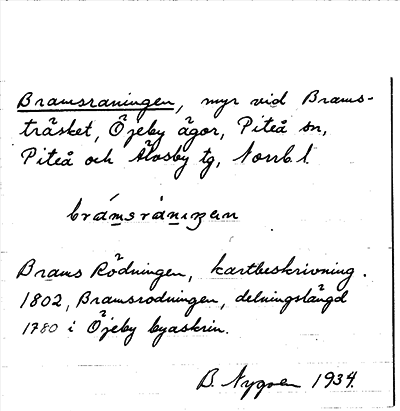 Bramsraningen, myr vid Brams-
träsket, Öjeby ägor, Piteå sn,
Piteå och Älvsby tg, Norrb. l.
Brams Rödningen, kartbeskrivning.
1802, Bramsrodningen, delningslängd
1780 i Öjeby byaskrin.
B. Nygren 1934.